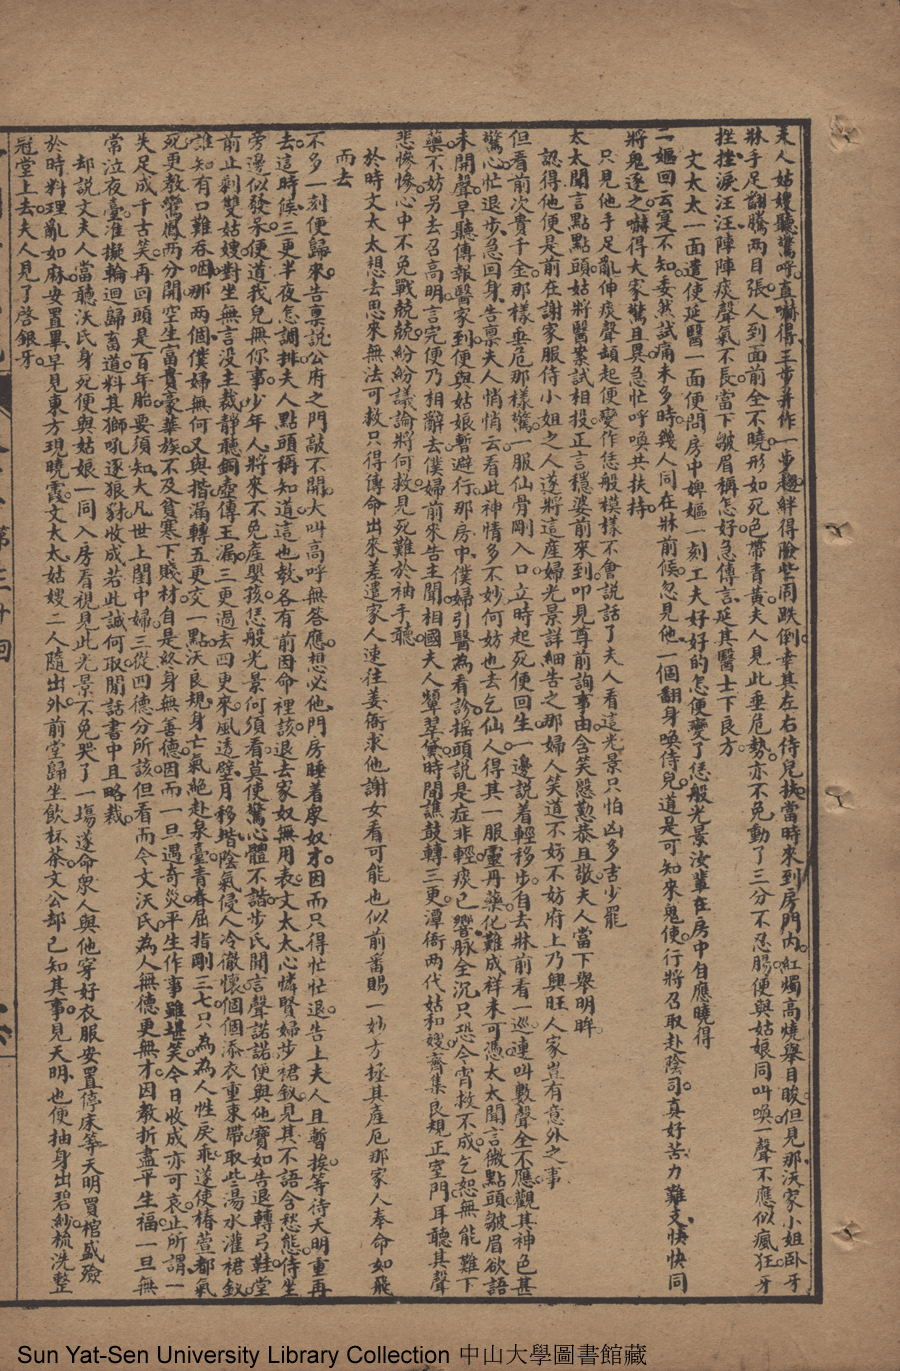 夫人姑嫂聽驚呼直嚇得三步并作一步趨絆得險些周跌倒幸其左右侍兒扶當時來到房門內紅燭高燒舉目睃但見那沃家小姐臥牙
牀手足翻騰兩目張人到面前全不曉形如死色帶青黃夫人見此垂危勢亦不免動了三分不忍腸便與姑娘同叫喚一聲不應似瘋狂牙
挫挫淚汪汪陣陣痰聲氣不長當下皺眉稱怎好急傳言延其醫士下良方
文太太一面遣使延醫一面便問房中婢嫗一刻工夫好好的怎便變了恁般光景汝輩在房中自應曉得
一嫗回云寔不知委然試痛未多時幾人同在牀前候忽見他一個翻身喚侍兒道是可知來鬼使行將召取赴陰司真好苦力難支快快同
將鬼逐之嚇得大家驚且異急忙呼喚共扶持
只見他手足亂伸痰聲頡起便變作恁般模樣不會說話了夫人看這光景只怕凶多吉少罷
太太聞言點點頭姑將醫案試相投正言穩婆前來到叩見尊前詢事由含笑慇懃恭且敬夫人當下舉明眸
認得他便是前在謝家服侍小姐之人遂將這產婦光景詳細告之那婦人笑道不妨不妨府上乃興旺人家豈有意外之事
但看前次貴千金那樣垂危那樣驚一服仙骨剛入口立時起死便回生一邊說着輕移步自去牀前看一巡連叫數聲全不應觀其神色甚
驚心忙退步急回身告禀夫人悄悄云看此神情多不妙何妨也去乞仙人得其一服靈丹藥化難成祥未可憑太太聞言微點頭皺眉欲語
未開聲早聽傳報醫家到便與姑娘暫避行那房中僕婦引醫為看診搖頭說是症非輕痰已響脈全沉只恐今宵救不成乞恕無能難下
藥不妨另去召高明言完便乃相辭去僕婦前來告主聞相國夫人顰翠黛時間譙鼓轉三更潭衙兩代姑和嫂齊集良規正室門耳聽其聲
悲慘慘心中不免戰兢兢紛紛議論將何救見死難於袖手聽
於時文太太想去思來無法可救只得傳命出來差遣家人速往姜衙求他謝女看可能也似前番賜一妙方拯其產厄那家人奉命如飛
而去
不多一刻便歸來告稟說公府之門敲不開大叫高呼無答應想必他門房睡着衆奴才因而只得忙忙退告上夫人且暫挨等待天明重再
去這時候三更半夜怎調排夫人點頭稱知道這也教各有前因命裡該退去家奴無用表文太太心憐賢婦莎裙釵見其不語含愁態侍坐
旁邊似發呆便道我兒無你事少年人將來不免產嬰孩恁般光景何須看莫使驚心體不諧步氏開言聲諾諾便與他寶如告退轉弓鞋堂
前止剩雙姑嫂對坐無言没主裁靜聽銅壺傳玉漏三更過去四更來風透壁月移堦陰氣侵人冷徹懷個個添衣重束帶取些湯水灌裙釵
誰知有口難吞咽那兩個僕婦無何又與揩漏轉五更交一點沃良規身亡氣絶赴泉臺青春屈指剛三七只為為人性戾乖遂使椿萱都氣
死更教鸞鳳兩分開空生富貴豪華族不及貧寒下賤材自是終身無善德因而一旦遇奇災平生作事雖堪笑今日收成亦可哀止所謂一
失足成千古笑再回頭是百年胎要須知大凡世上閨中婦三從四德分所該但看而今文沃氏為人無德更無才因教折盡平生福一旦無
常泣夜臺准擬輪迴歸畜道料其獅吼逐狼豺收成若此誠何取閒話書中且略裁
却説文夫人當聽沃氏身死便與姑娘一同入房看視見此光景不免哭了一塲遂命衆人與他穿好衣服安置停床等天明買棺盛殮
於時料理亂如麻安置畢早見東方現曉霞文太太姑嫂二人隨出外前堂歸坐飲杯茶文公却已知其事見天明也便抽身出碧紗梳洗整
冠堂上去夫人見了啓銀牙
第三十回
Sun Yat-Sen University Library Collection 中山大學圖書館藏